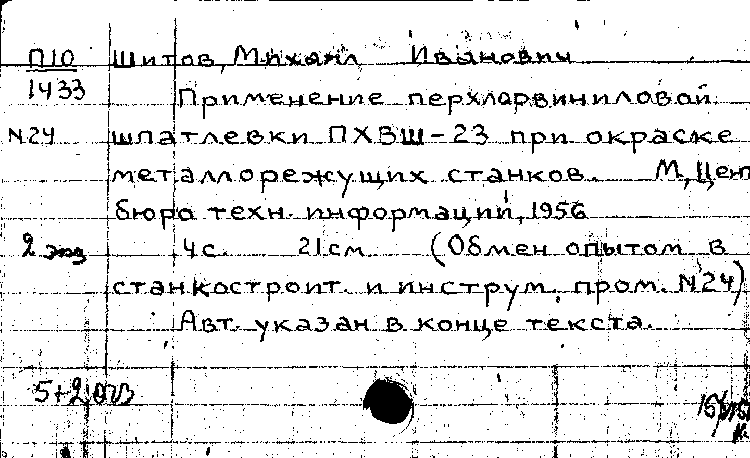 П10 Шитов, Михаил Иванович
1433 Применение перхлорвиниловой
N24 шпатлевки ПХВШ-23 при окраске
металлорежущих станков. М, Цент
бюро техн. информации, 1956
2 экз 4с. 21см (Обмен опытом в
станкостроит. и инструм. пром. N24)
Авт. указан в конце текста.
5+2